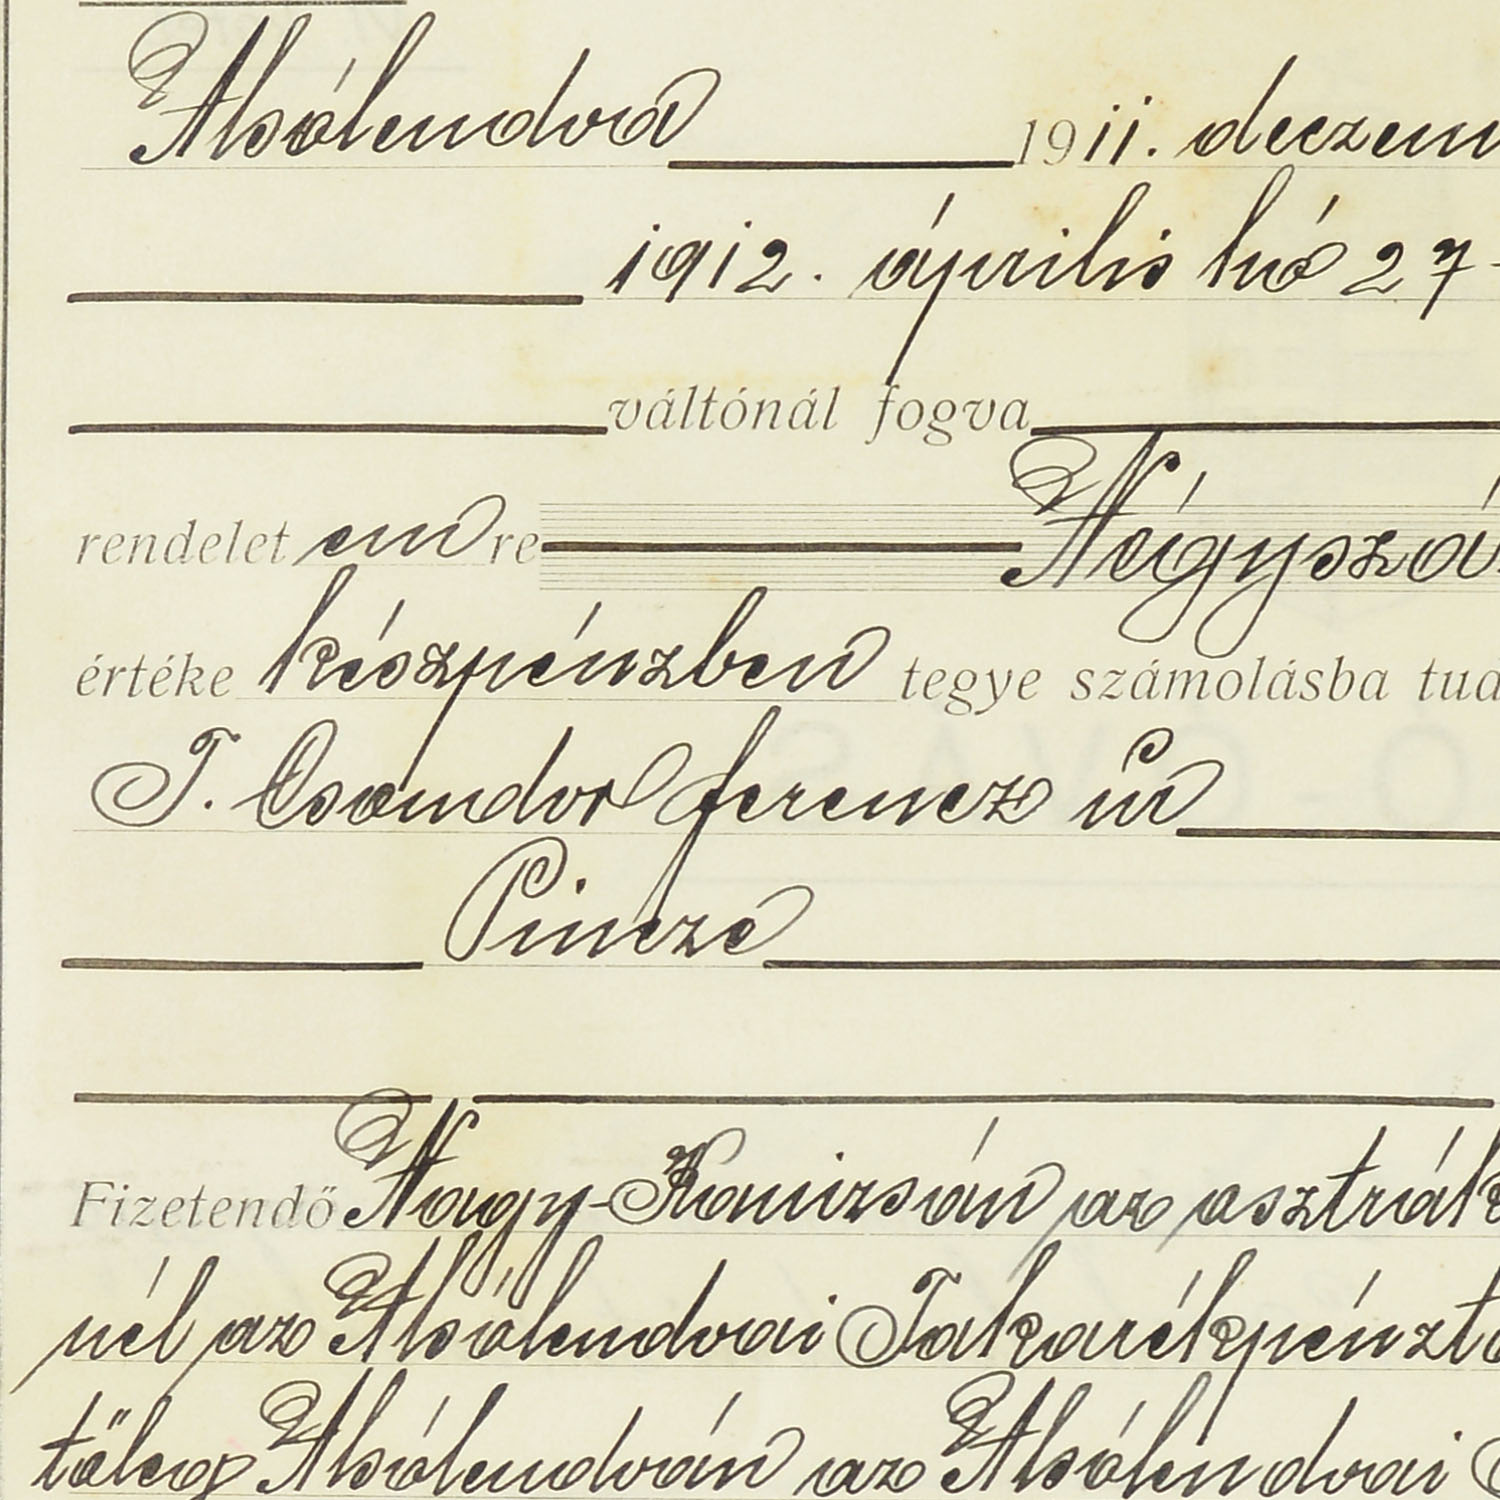 Alsólendva 1911. deczem
1912. április hó 27-
váltónál fogva
rendelet em re Négyszá
értéke készpénzben tegye számolásba tud
T. Csandor ferencz úr
Pincze
Fizetendő Nagy-Kanizsán az osztrák
nél az Alsólendvai Takarékpénztá
tőleg Alsólendván az Alsólendvai